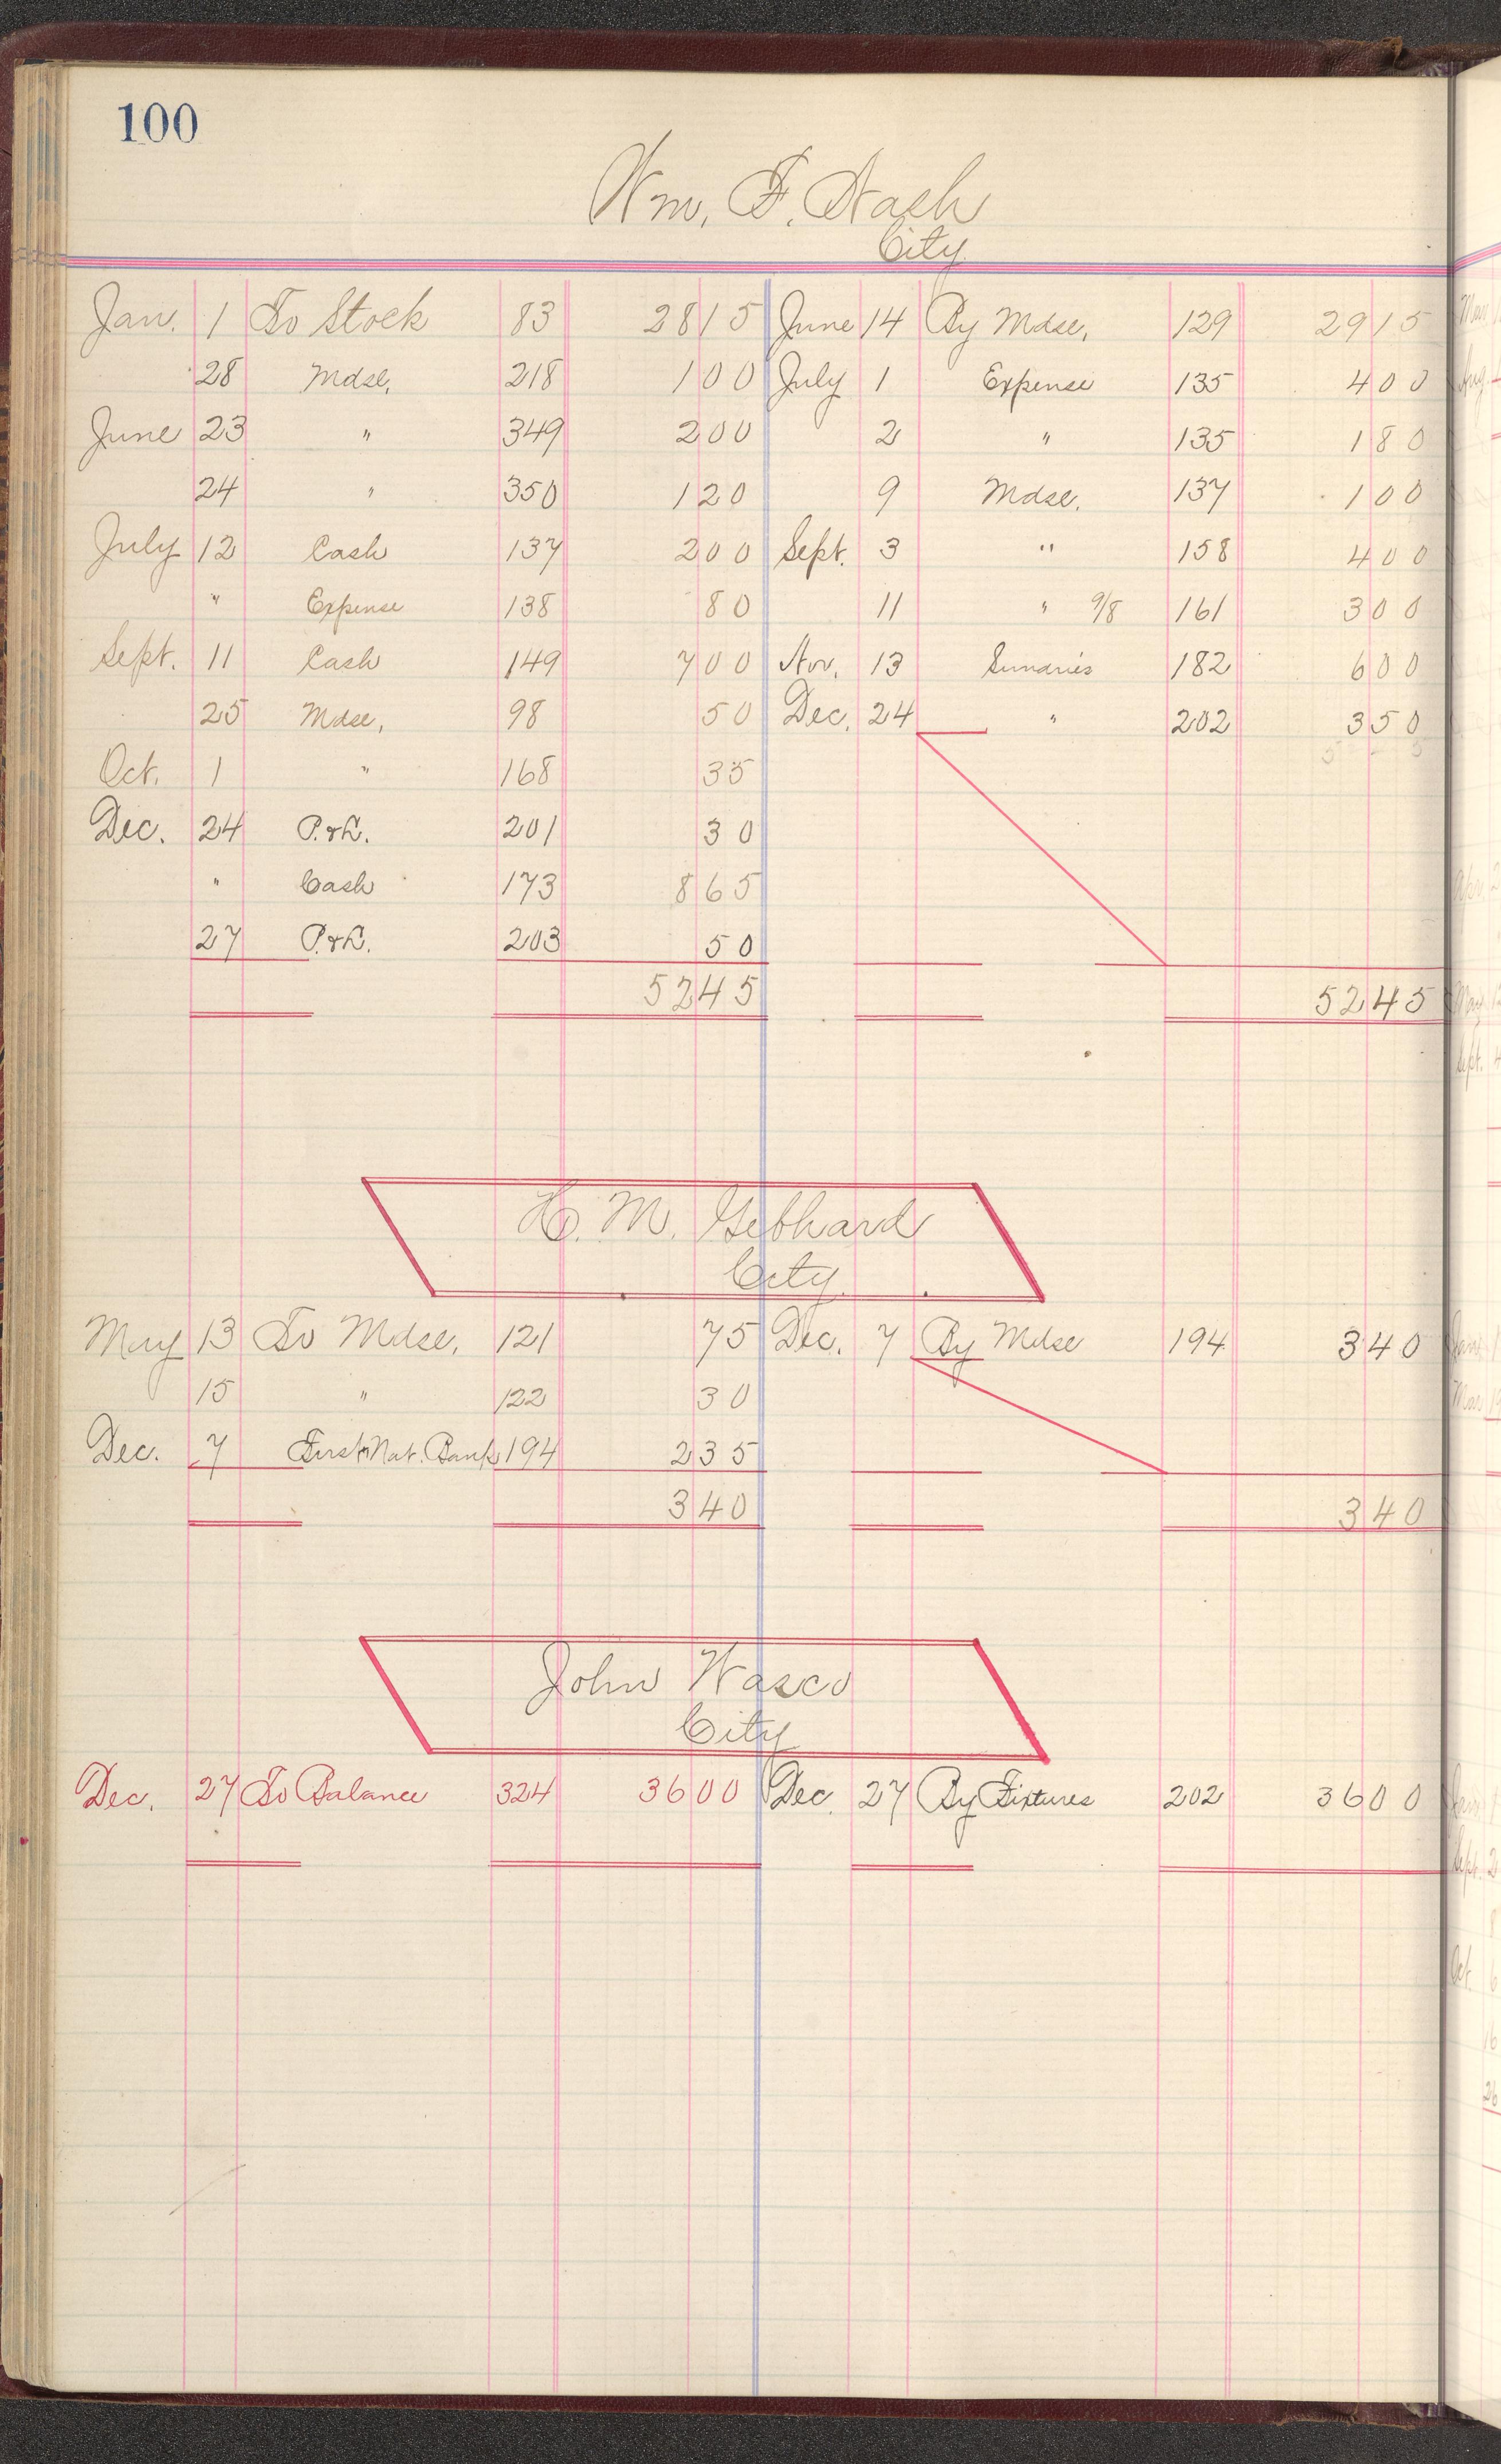 100
Wm. F. Nash
City
Jan. 1 To Stock 83 2815 June 14 By Mdse. 129 2915
28 Mdse. 218 100 July 1 Expense 135 400
June 23 " 349 200 2 " 135 180
24 " 350 120 9 Mdse. 137 100
July 12 Cash 137 200 Sept. 3 " 158 400
" Expense 138 80 11 " 9/8 161 300
Sept. 11 Cash 149 700 Nov. 13 Sundries 182 600
25 Mdse. 98 50 Dec. 24 " 202 350
Oct. 1 " 168 35
Dec. 24 P. & L. 201 30
" Cash 173 865
27 P. & L. 203 50
5245 5245
H. M. Gebhard
City
May 13 To Mdse. 121 75 Dec. 7 By Mdse 194 340
15 " 122 30
Dec. 7 First Nat. Bank 194 235
340 340
John Wasco
City
Dec. 27 To Balance 324 3600 Dec. 27 By Fixtures 202 3600